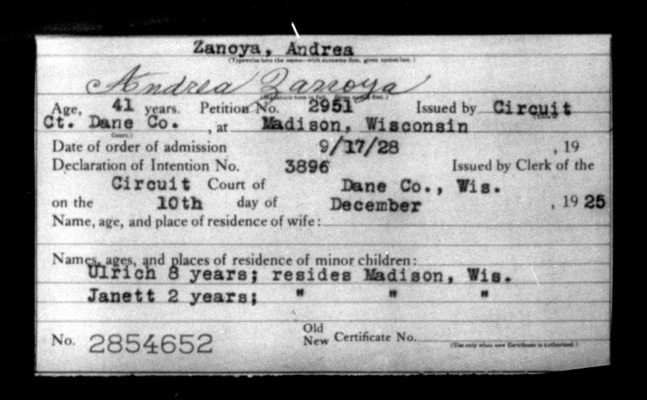 Zanoya, Andrea
(Typewrite here the name—with surname first, given names last.)
Andrea Zanoya
Age, 41 years. Petition No. 2951 Issued by Circuit
Ct. Dane Co. , at Madison, Wisconsin
(Court.)
Date of order of admission 9/17/28 , 19
Declaration of Intention No. 3896 Issued by Clerk of the
Circuit Court of Dane Co., Wis.
on the 10th day of December , 1925
Name, age, and place of residence of wife:
Names, ages, and places of residence of minor children:
Ulrich 8 years; resides Madison, Wis.
Janett 2 years; " " "
No. 2854652 Old
New Certificate No.
(Use only when new Certificate is authorized.)